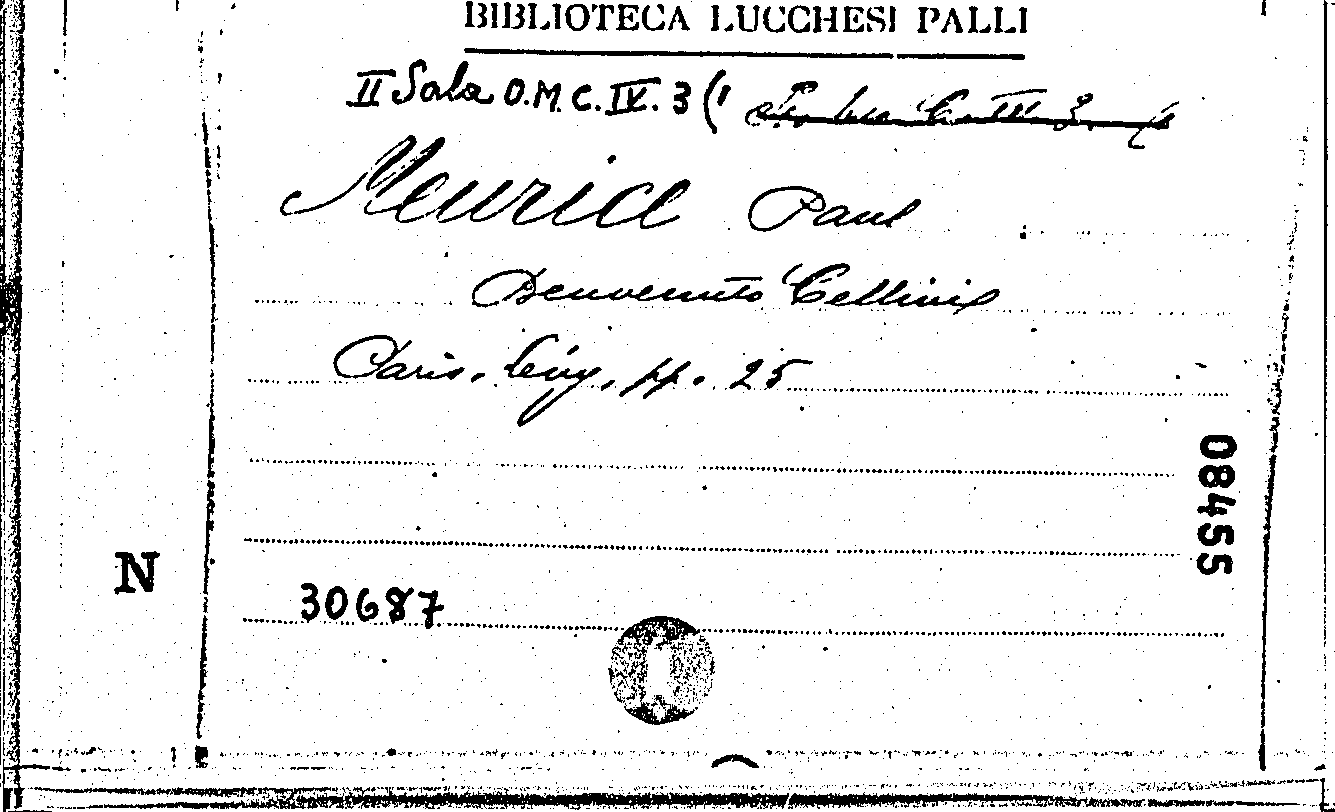 BIBLIOTECA LUCCHESI PALLI
II Sala O.M.C. IV. 3 (1
Meurice Paul
Benvenuto Cellini
Paris. Lévy, pp. 25
08455
N
30687